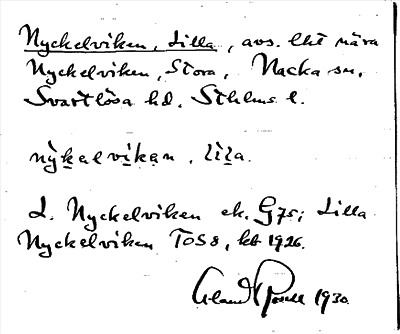 Nyckelviken, Lilla, avs. lht nära
Nyckelviken, Stora, Nacka sn,
Svartlösa hd. Sthlms l.
nỳkalvikan, lìla.
L. Nyckelviken ek. G75; Lilla
Nyckelviken TOS8, kbt 1926.
1930.